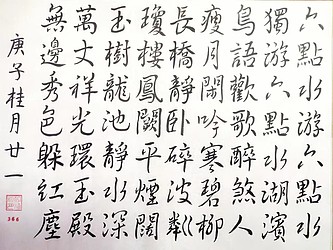 六點水游六點水
獨游六點水湖濱
鳥語歡歌醉煞人
瘦月閑吟寒碧柳
長橋靜卧碎波粼
瓊樓鳳闕平煙闊
玉樹龍池靜水深
萬丈祥光環玉殿
無邊秀色躲红塵
庚子桂月廿一